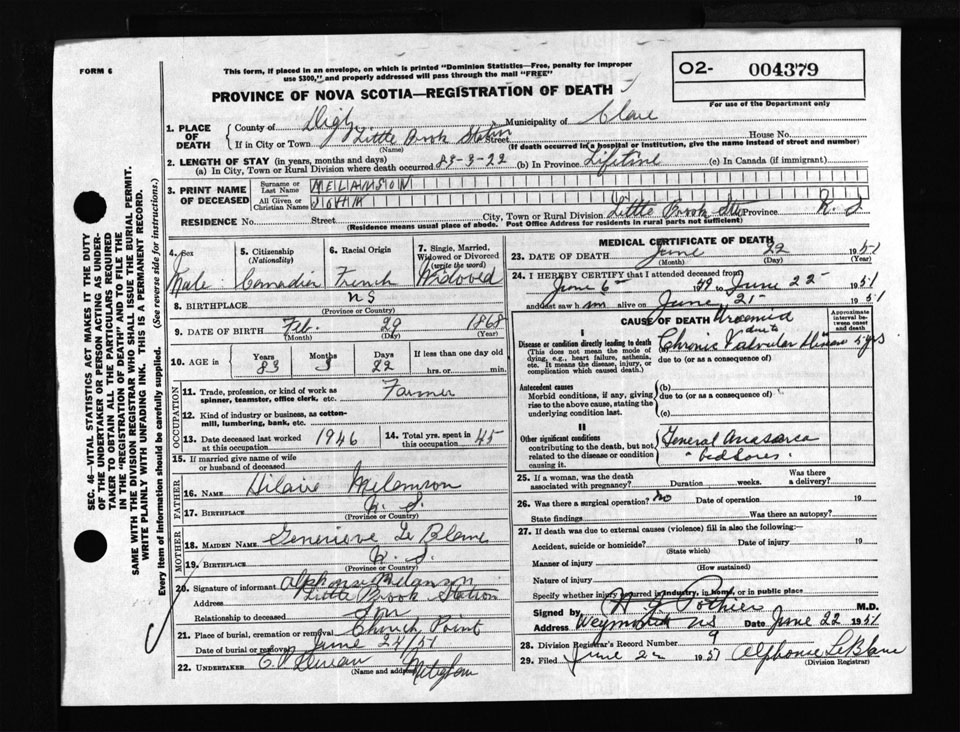 FORM 6
This form, if placed in an envelope, on which is printed "Dominion Statistics—Free, penalty for improper
use $300," and properly addressed will pass through the mail "FREE"
02- 004379
For use of the Department only
PROVINCE OF NOVA SCOTIA—REGISTRATION OF DEATH
1. PLACE OF DEATH
County of Digby Municipality of Clare
If in City or Town Little Brook Station Street House No.
(Name) (If death occurred in a hospital or institution, give the name instead of street and number)
2. LENGTH OF STAY (in years, months and days)
(a) In City, Town or Rural Division where death occurred 83-3-22 (b) In Province Lifetime (c) In Canada (if immigrant)
3. PRINT NAME OF DECEASED
Surname or Last Name MELANSON
All Given or Christian Names JOHN
City, Town or Rural Division Little Brook Stn Province N. S.
RESIDENCE No. Street
(Residence means usual place of abode. Post Office Address for residents in rural parts not sufficient)
4. Sex Male
5. Citizenship (Nationality) Canadian
6. Racial Origin French
7. Single, Married, Widowed or Divorced (write the word) Widowed
8. BIRTHPLACE NS
(Province or Country)
9. DATE OF BIRTH Feb. 29 1868
(Month) (Day) (Year)
10. AGE in Years 83 Months 3 Days 22 If less than one day old hrs. or min.
OCCUPATION
11. Trade, profession, or kind of work as spinner, teamster, office clerk, etc. Farmer
12. Kind of industry or business, as cotton-mill, lumbering, bank, etc.
13. Date deceased last worked at this occupation 1946
14. Total yrs. spent in this occupation 45
15. If married give name of wife or husband of deceased
FATHER
16. NAME Hilaire Melanson
17. BIRTHPLACE N. S.
(Province or Country)
MOTHER
18. MAIDEN NAME Genevieve Le Blanc
19. BIRTHPLACE N. S.
(Province or Country)
20. Signature of informant Alphonse Melanson
Address Little Brook Station
Relationship to deceased Son
21. Place of burial, cremation or removal Church Point
Date of burial or removal June 24/51
22. UNDERTAKER
Name and address Meteghan
MEDICAL CERTIFICATE OF DEATH
23. DATE OF DEATH June 22 1951
(Month) (Day) (Year)
24. I HEREBY CERTIFY that I attended deceased from
June 6 19 to June 22 1951
and last saw him alive on June 21 1951
CAUSE OF DEATH
Approximate interval between onset and death
I
Disease or condition directly leading to death
(This does not mean the mode of dying, e.g., heart failure, asthenia, etc. It means the disease, injury, or complication which caused death.)
Uraemia
due to
Chronic Valvular disease 5 yrs
due to (or as a consequence of)
Antecedent causes
Morbid conditions, if any, giving rise to the above cause, stating the underlying condition last.
(b)
due to (or as a consequence of)
(c)
II
Other significant conditions
contributing to the death, but not related to the disease or condition causing it.
General Anasarca
bed sores
25. If a woman, was the death associated with pregnancy? Duration weeks. Was there a delivery?
26. Was there a surgical operation? No Date of operation 19
State findings Was there an autopsy?
27. If death was due to external causes (violence) fill in also the following:—
Accident, suicide or homicide? Date of injury 19
(State which)
Manner of injury
(How sustained)
Nature of injury
Specify whether injury occurred in industry, in home, or in public place
Signed by Pothier M.D.
Address Weymouth NS Date June 22 1951
28. Division Registrar's Record Number 9
29. Filed June 22 1951 Alphonse LeBlanc
(Division Registrar)
SEC. 46—VITAL STATISTICS ACT MAKES IT THE DUTY
OF THE UNDERTAKER OR PERSON ACTING AS UNDER-
TAKER TO OBTAIN ALL THE PARTICULARS REQUIRED
IN THE "REGISTRATION OF DEATH" AND TO FILE THE
SAME WITH THE DIVISION REGISTRAR WHO SHALL ISSUE THE BURIAL PERMIT.
WRITE PLAINLY WITH UNFADING INK. THIS IS A PERMANENT RECORD.
Every item of information should be carefully supplied. (See reverse side for instructions.)